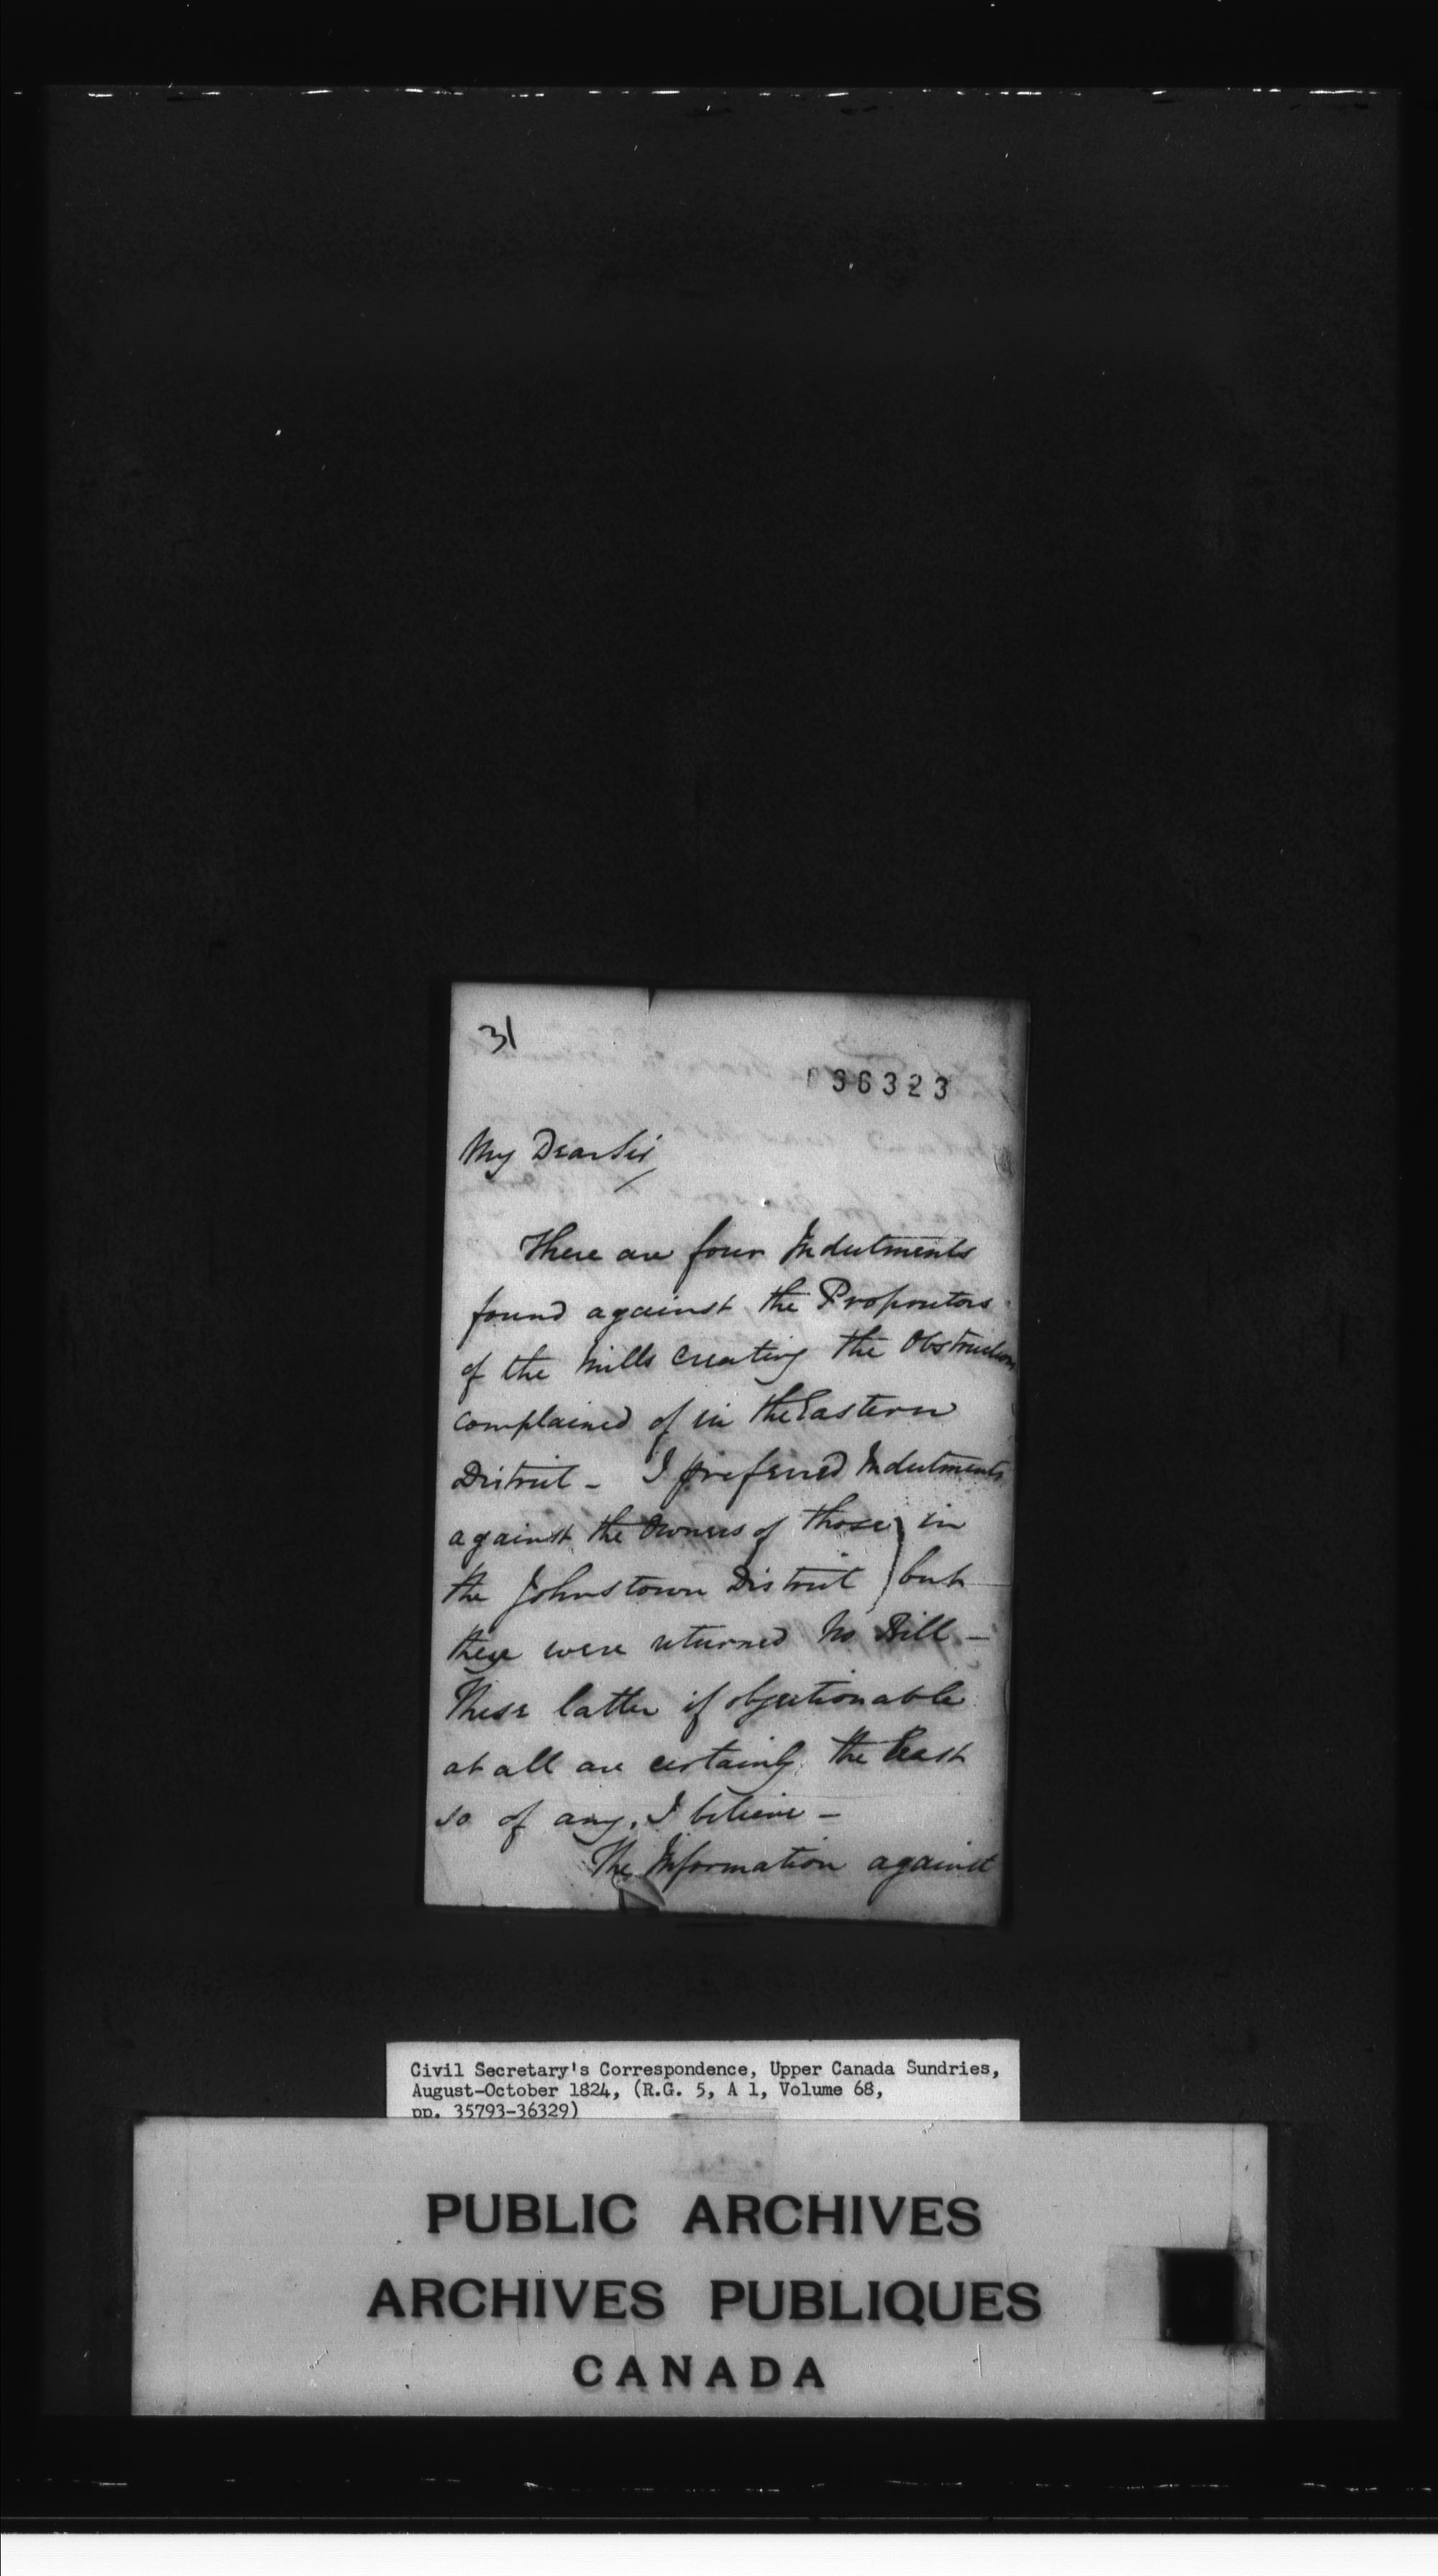 31
036323
My Dear Sir
There are four Indictments
found against the Proprietors
of the Mills creating the Obstructions
complained of in the Eastern
District - I preferred Indictments
against the Owners of those in
the Johnstown District but
these were returned No Bill -
These latter if objectionable
at all are certainly the least
so of any, I believe -
The Information against
Civil Secretary's Correspondence, Upper Canada Sundries,
August-October 1824, (R.G. 5, A 1, Volume 68,
pp. 35793-36329)
PUBLIC ARCHIVES
ARCHIVES PUBLIQUES
CANADA